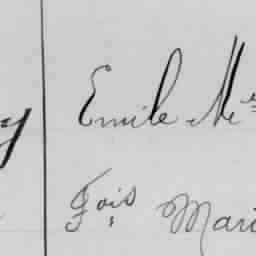 y Emile Me
Fois Mari